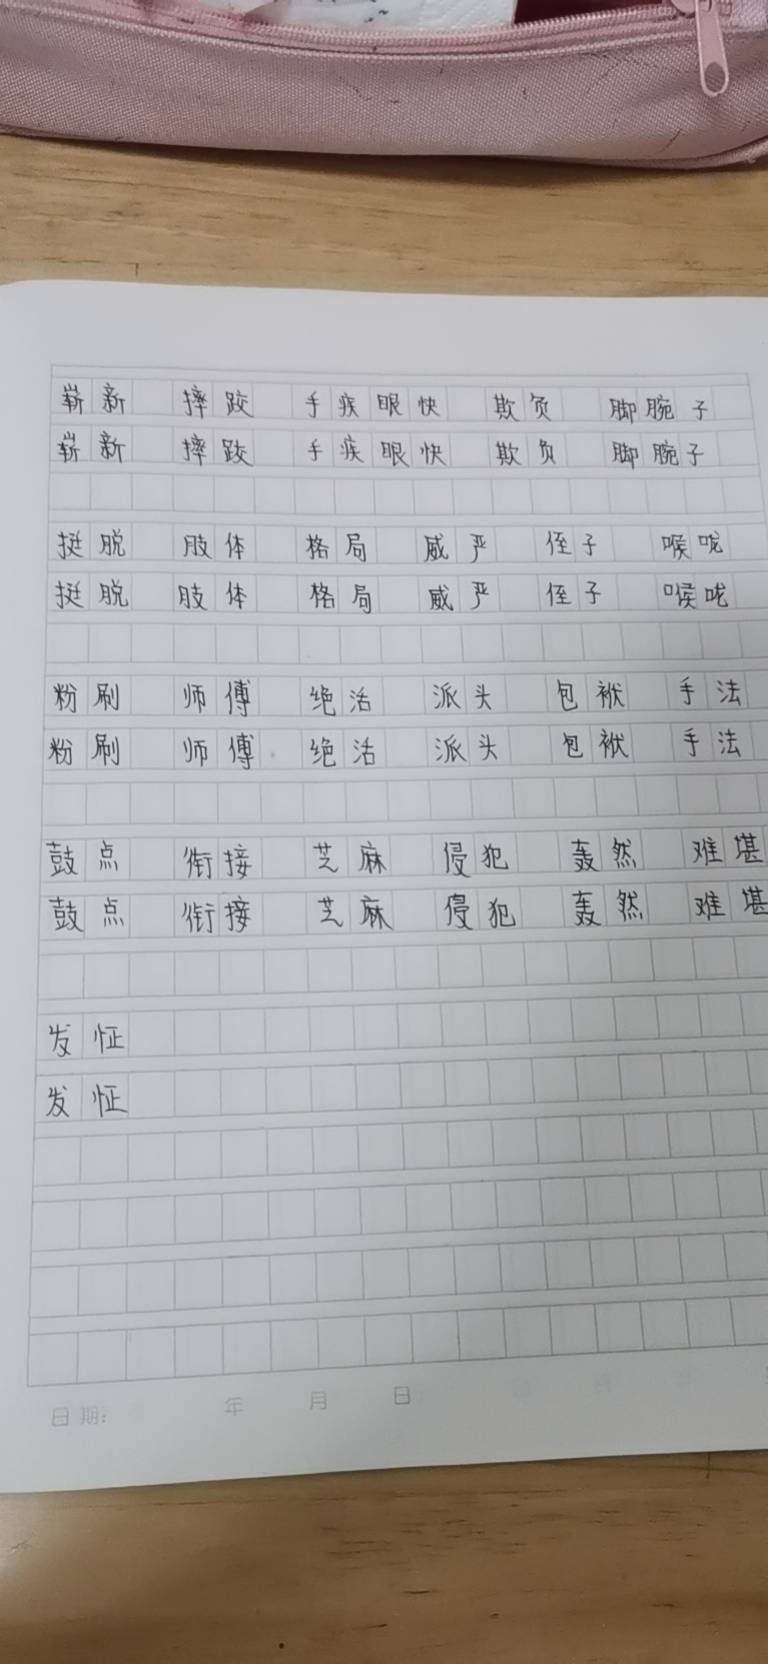 崭新 摔跤 手疾眼快 欺负 脚腕子
崭新 摔跤 手疾眼快 欺负 脚腕子
挺脱 肢体 格局 威严 侄子 喉咙
挺脱 肢体 格局 威严 侄子 喉咙
粉刷 师傅 绝活 派头 包袱 手法
粉刷 师傅 绝活 派头 包袱 手法
鼓点 衔接 芝麻 侵犯 轰然 难堪
鼓点 衔接 芝麻 侵犯 轰然 难堪
发怔
发怔
日期: 年 月 日